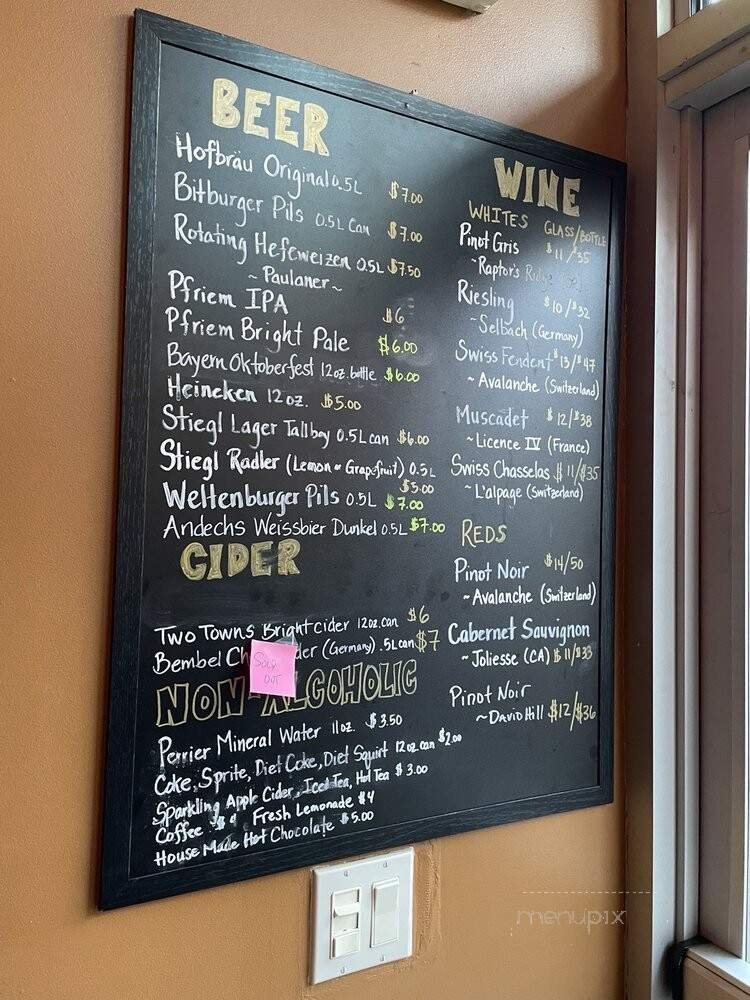 BEER
Hofbräu Original 0.5L $7.00
Bitburger Pils 0.5L Can $7.00
Rotating Hefeweizen 0.5L $7.50
~ Paulaner ~
Pfriem IPA $6
Pfriem Bright Pale $6.00
Bayern Oktoberfest 12oz. bottle $6.00
Heineken 12oz. $5.00
Stiegl Lager Tallboy 0.5L can $6.00
Stiegl Radler (Lemon or Grapefruit) 0.5L
$5.00
Weltenburger Pils 0.5L $7.00
Andechs Weissbier Dunkel 0.5L $7.00
CIDER
Two Towns Bright cider 12oz.can $6
Bembel Ch der (Germany) .5L can $7
SOLD
OUT
NON-ALCOHOLIC
Perrier Mineral Water 11oz. $3.50
Coke, Sprite, Diet Coke, Diet Squirt 12oz can $2.00
Sparkling Apple Cider, Iced Tea, Hot Tea $3.00
Coffee $4 Fresh Lemonade $4
House Made Hot Chocolate $5.00
WINE
WHITES GLASS/BOTTLE
Pinot Gris $11/$35
~Raptor's
Riesling $10/$32
~Selbach (Germany)
Swiss Fendent $13/$47
~Avalanche (Switzerland)
Muscadet $12/$38
~Licence IV (France)
Swiss Chasselas $11/$35
~L'alpage (Switzerland)
REDS
Pinot Noir $14/50
~Avalanche (Switzerland)
Cabernet Sauvignon
~Joliesse (CA) $11/$33
Pinot Noir
~David Hill $12/$36
menupix